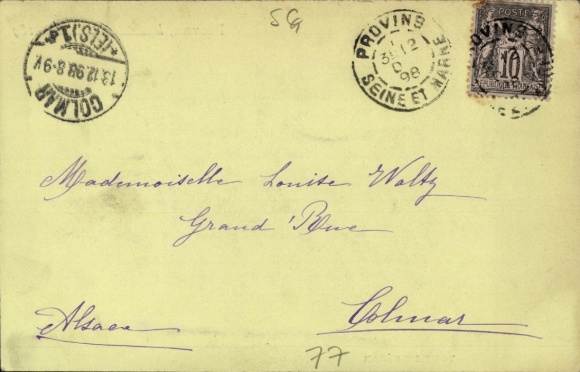 SG
COLMAR
13.12.98.8-9V.
*(ELS.)1*
PROVINS
12
98
SEINE ET MARNE
POSTE
10
Mademoiselle Louise Waltz
Grand'Rue
Colmar
Alsace
77